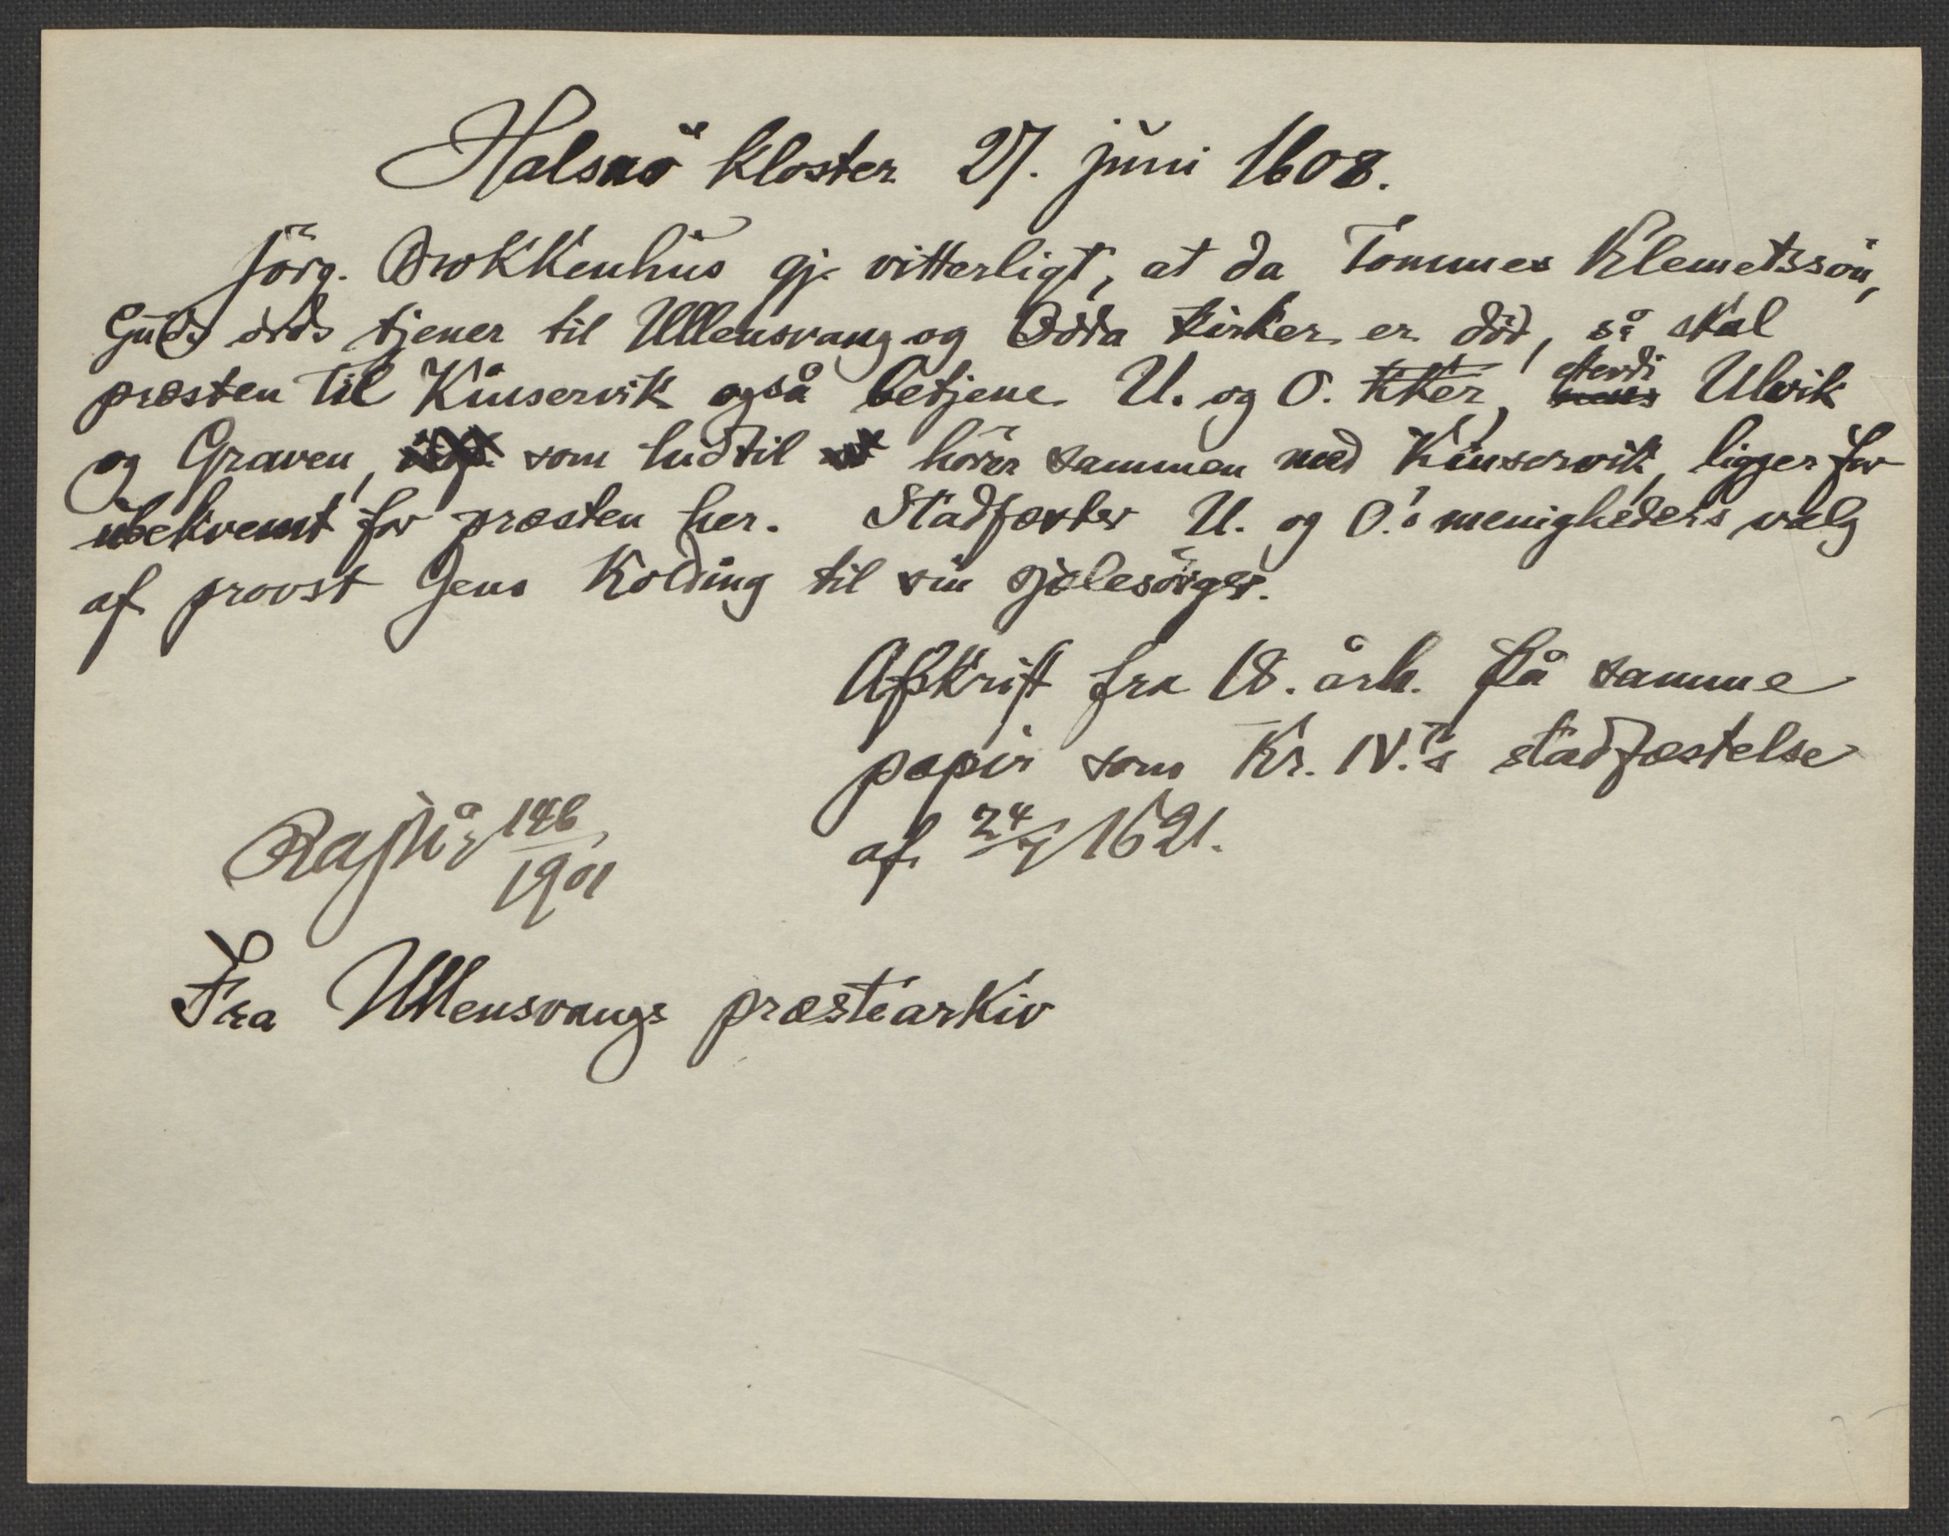 Halsnö kloster 27. juni 1608.
Jörg. Brokkenhus gj. vitterligt, at da Tommes Klemetssön,
Guds ords tjener til Ullensvang og Odda kirker er död, så skal
præsten til Kinservik også betjene U. og O. kker, efterdi Ulvik
og Graven, som hidtil hörer sammen med Kinservik, ligger for
ubekvemt for præsten her. Stadfæster U. og O.'s menigheders valg
af provst Jens Kolding til sin sjælesörger.
Afskrift fra 18. årh. På samme
papir som Kr. IV.'s stadfæstelse
af 24/7 1621.
146
1901
Fra Ullensvangs præstearkiv